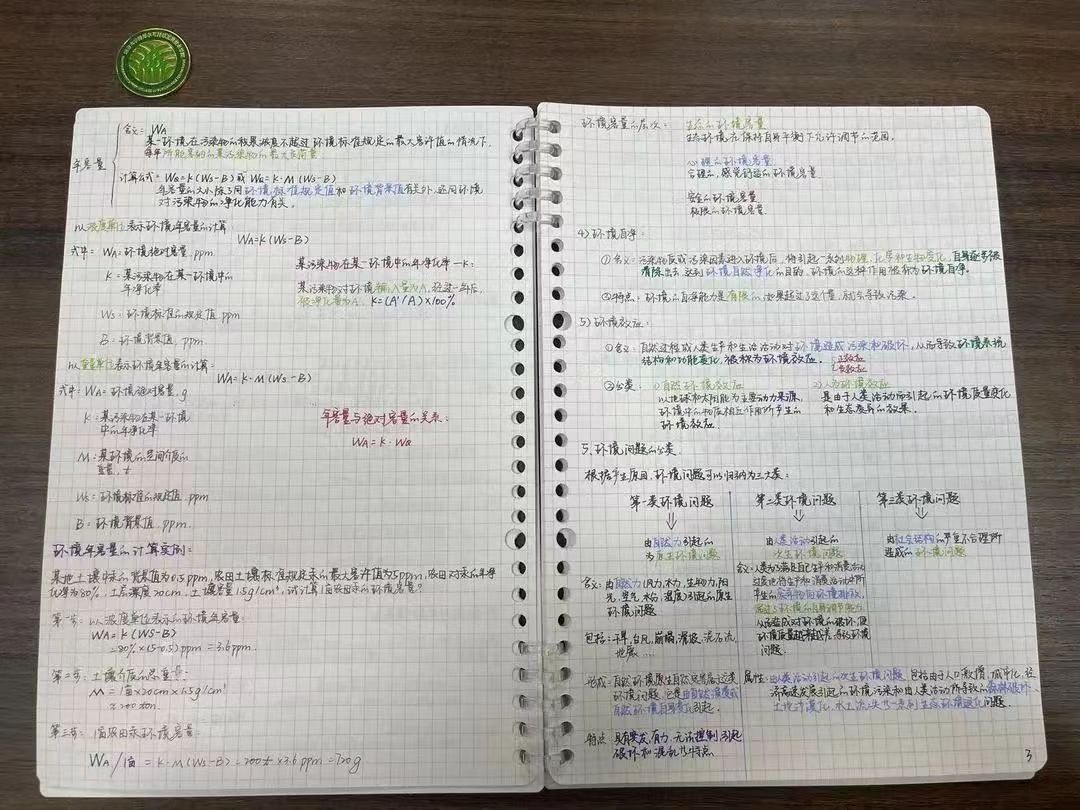 年容量
含义： WA
某一环境在污染物的积累浓度不超过环境标准规定的最大容许值的情况下，
每年所能容纳的某污染物的最大负荷量
计算公式：WQ=K(WS-B) 或 WQ=K·M(WS-B)
年容量的大小除了同环境标准规定值和环境背景值有关外，还同环境
对污染物的净化能力有关。
以浓度单位表示环境年容量的计算
WA=K(WS-B)
式中： WA：环境绝对容量，ppm
K：某污染物在某一环境中的
年净化率
WS：环境标准的规定值，ppm
B：环境背景值，ppm
某污染物在某一环境中的年净化率—K：
某污染物对环境输入量为A，经过一年后，
被净化量为A'，K=(A'/A)×100%
以重量单位表示环境年容量的计算：
WA=K·M(WS-B)
式中：WA：环境绝对容量，g
K：某污染物在某一环境
中的年净化率
M：某环境的空间介质的
重量，t
WS：环境标准的规定值，ppm
B：环境背景值，ppm.
年容量与绝对容量的关系：
WA=K·WQ
环境年容量的计算实例：
某地土壤中汞的背景值为0.5ppm，农田土壤标准规定汞的最大容许值为5ppm，农田对汞的年净
化率为80%，土层深度20cm，土壤容量1.5g/cm³，试计算1亩农田汞的环境容量？
第一步：以浓度单位表示的环境年容量：
WA=K(WS-B)
=80%×(5-0.5)ppm=3.6ppm.
第二步：土壤介质的总重量：
M=1亩×20cm×1.5g/cm³
≈200ton.
第三步：1亩农田汞环境容量：
WA/1亩=K·M(WS-B)=200t×3.6ppm=720g
环境容量的层次： 生态的环境容量
生态环境在保持自身平衡下允许调节的范围。
心理的环境容量
合理的，感觉舒适的环境容量
安全的环境容量
极限的环境容量
4)环境自净：
①含义：污染物质或污染因素进入环境后，将引起一系列物理，化学和生物变化，自身逐步被
清除出去，达到环境自然净化的目的，环境的这种作用被称为环境自净。
②特点：环境的自净能力是有限的，如果超过了这个量，就会导致污染。
5)环境效应：
①含义：自然过程或人类生产和生活活动对环境造成污染和破坏，从而导致环境系统
结构和功能变化，被称为环境效应。
正效应
负效应
②分类： 1)自然环境效应
以地球和太阳能为主要动力来源，
环境中的物质相互作用所产生的
环境效应
2)人为环境效应
是由于人类活动而引起的环境质量变化
和生态变异的效果。
5.环境问题的分类
根据产生原因，环境问题可以归纳为三大类：
第一类环境问题
由自然力引起的
为原生环境问题
含义：由自然力(风力，水力，生物力，阳
光，空气，水份，温度)引起的原生
环境问题
包括：干旱，台风，崩塌，滑坡，泥石流
地震......
第二类环境问题
由人类活动引起的
次生环境问题
含义：人类为满足自己生产和消费活动
过度地将生产和消费活动中所
产生的废弃物向环境排放，
超过了环境的自身调节能力
从而造成对环境的破坏，使
环境质量越来越差，导致环境
问题。
第三类环境问题
由社会结构的严重不合理所
造成的环境问题
形成：自然环境原生自然灾害属于这类
环境问题，它是由自然演变或
自然环境自身变化引起。
特点：具有突发，有力，无法控制，引起
破坏和混乱等特点
属性：由人类活动引起的次生环境问题，包括由于人口激增，城市化，经
济高速发展引起的环境污染和由人类活动所导致的森林破坏、
土地沙漠化，水土流失等一系列生态环境退化问题。
3